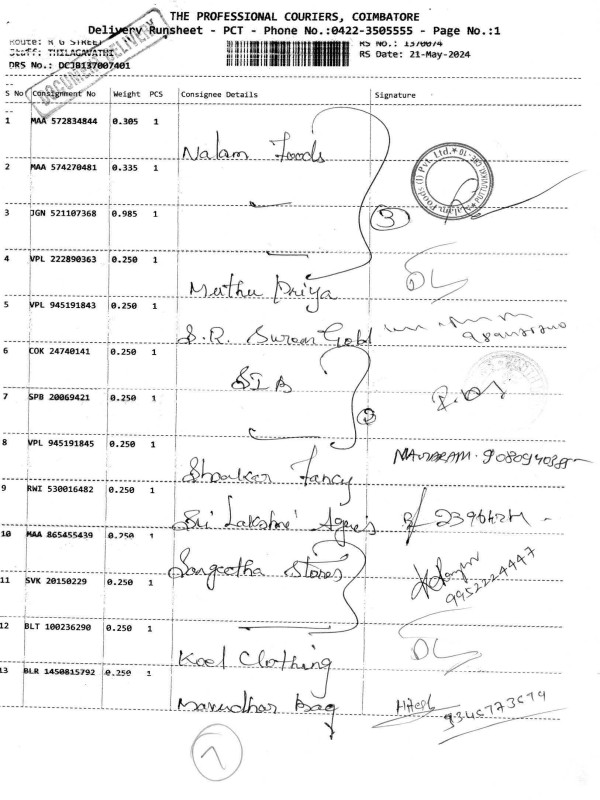 THE PROFESSIONAL COURIERS, COIMBATORE
Delivery Runsheet - PCT - Phone No.:0422-3505555 - Page No.:1
Route: R G STREET
RS No.: 1370074
Staff: THILAGAVATHI
RS Date: 21-May-2024
DRS No.: DCJB137007401
DOCUMENT DELIVERY
S No Consignment No Weight PCS Consignee Details Signature
1 MAA 572834844 0.305 1 Nalam Foods
2 MAA 574270481 0.335 1
3 JGN 521107368 0.985 1 3
4 VPL 222890363 0.250 1 Muthu Priya DL
5 VPL 945191843 0.250 1 S.R. Gold
6 COK 24740141 0.250 1 SIB
7 SPB 20069421 0.250 1
8 VPL 945191845 0.250 1 Shankar Fancy
9 RWI 530016482 0.250 1 Sri Lakshmi
10 MAA 865455439 0.250 1 Sangeetha Stores
9952224447
11 SVK 20150229 0.250 1
12 BLT 100236290 0.250 1 Kool Clothing DL
13 BLR 1450815792 0.250 1 Marudhar Bag Hitesh